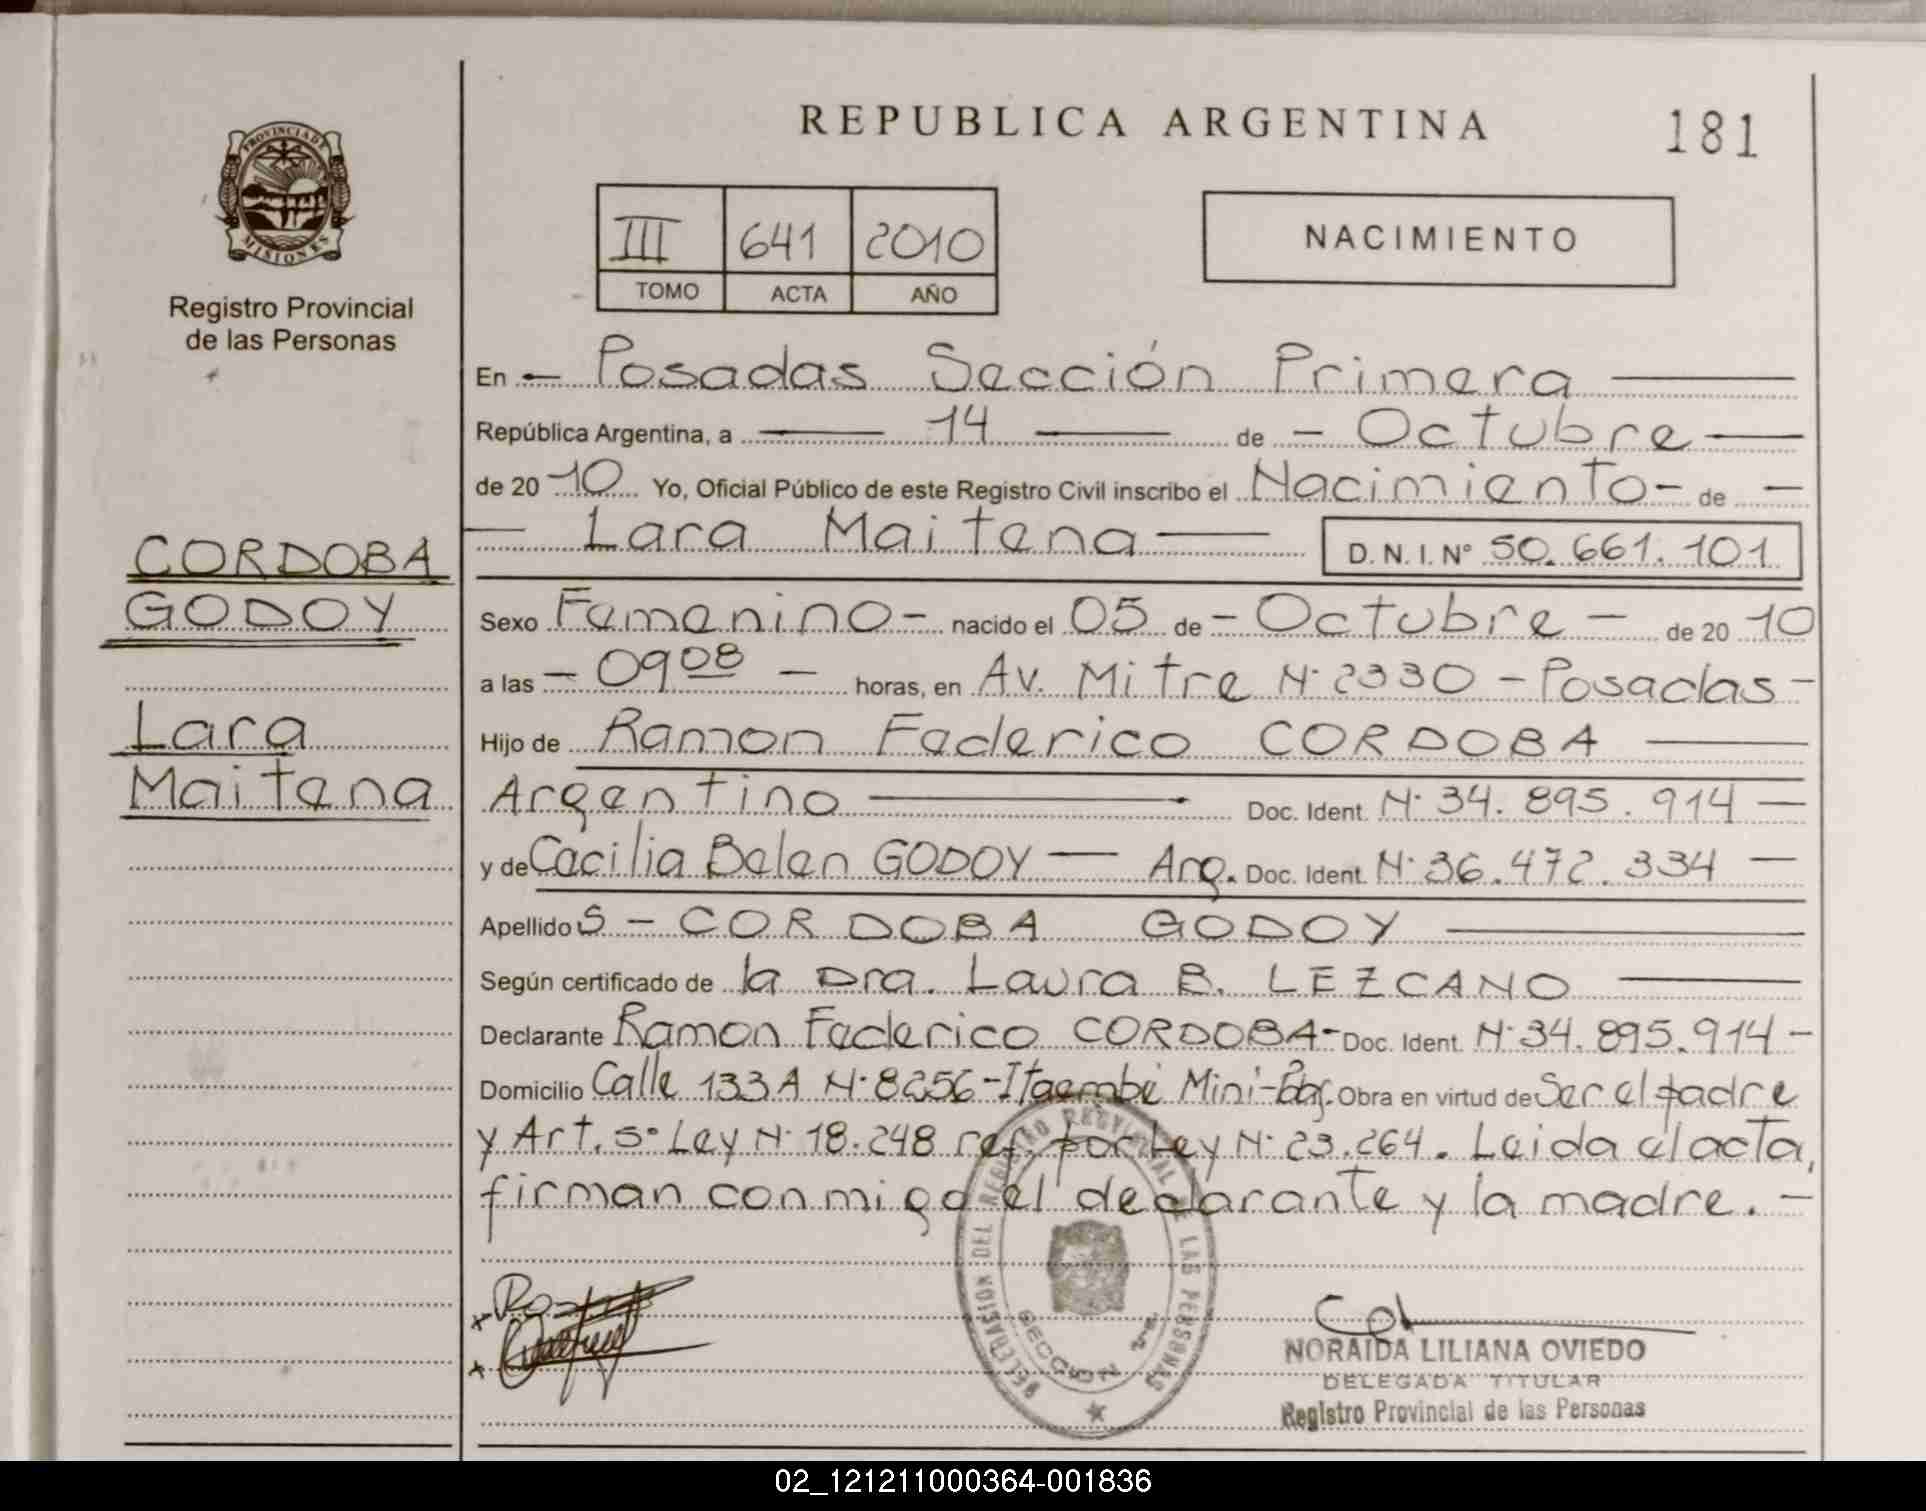 PROVINCIA DE
MISIONES
Registro Provincial
de las Personas
CORDOBA
GODOY
Lara
Maitena
REPUBLICA ARGENTINA
181
III 641 2010
TOMO ACTA AÑO
NACIMIENTO
En - Posadas Sección Primera
República Argentina, a 14 de - Octubre
de 20 10 Yo, Oficial Público de este Registro Civil inscribo el Nacimiento - de -
Lara Maitena D. N. I. Nº 50.661.101
Sexo Femenino - nacido el 05 de - Octubre - de 20 10
a las - 09 08 - horas, en Av. Mitre Nº 2330 - Posadas -
Hijo de Ramon Federico CORDOBA
Argentino Doc. Ident. Nº 34.895.914 -
y de Cecilia Belen GODOY - Arg. Doc. Ident. Nº 36.472.334 -
Apellido S - CORDOBA GODOY
Según certificado de la Dra. Laura B. LEZCANO
Declarante Ramon Federico CORDOBA - Doc. Ident. Nº 34.895.914 -
Domicilio Calle 133A Nº 8256 - Itaembé Mini - Obra en virtud de Ser el padre
y Art. 5º Ley Nº 18.248 ref. por Ley Nº 23.264. Leida el acta,
firman conmigo el declarante y la madre. -
DELEGACION DEL REGISTRO PROVINCIAL DE LAS PERSONAS
SECCION
NORAIDA LILIANA OVIEDO
DELEGADA TITULAR
Registro Provincial de las Personas
02_121211000364-001836